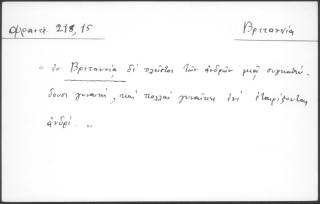 φραντ. 218,15 Βρεταννία
" ἐν Βρεταννίᾳ δὲ πλεῖστοι τῶν ἀνδρῶν μιᾷ συγκαθεύ-
δουσι γυναικί, καὶ πολλαὶ γυναῖκες ἑνὶ ἑταιρίζονται
ἀνδρί. "